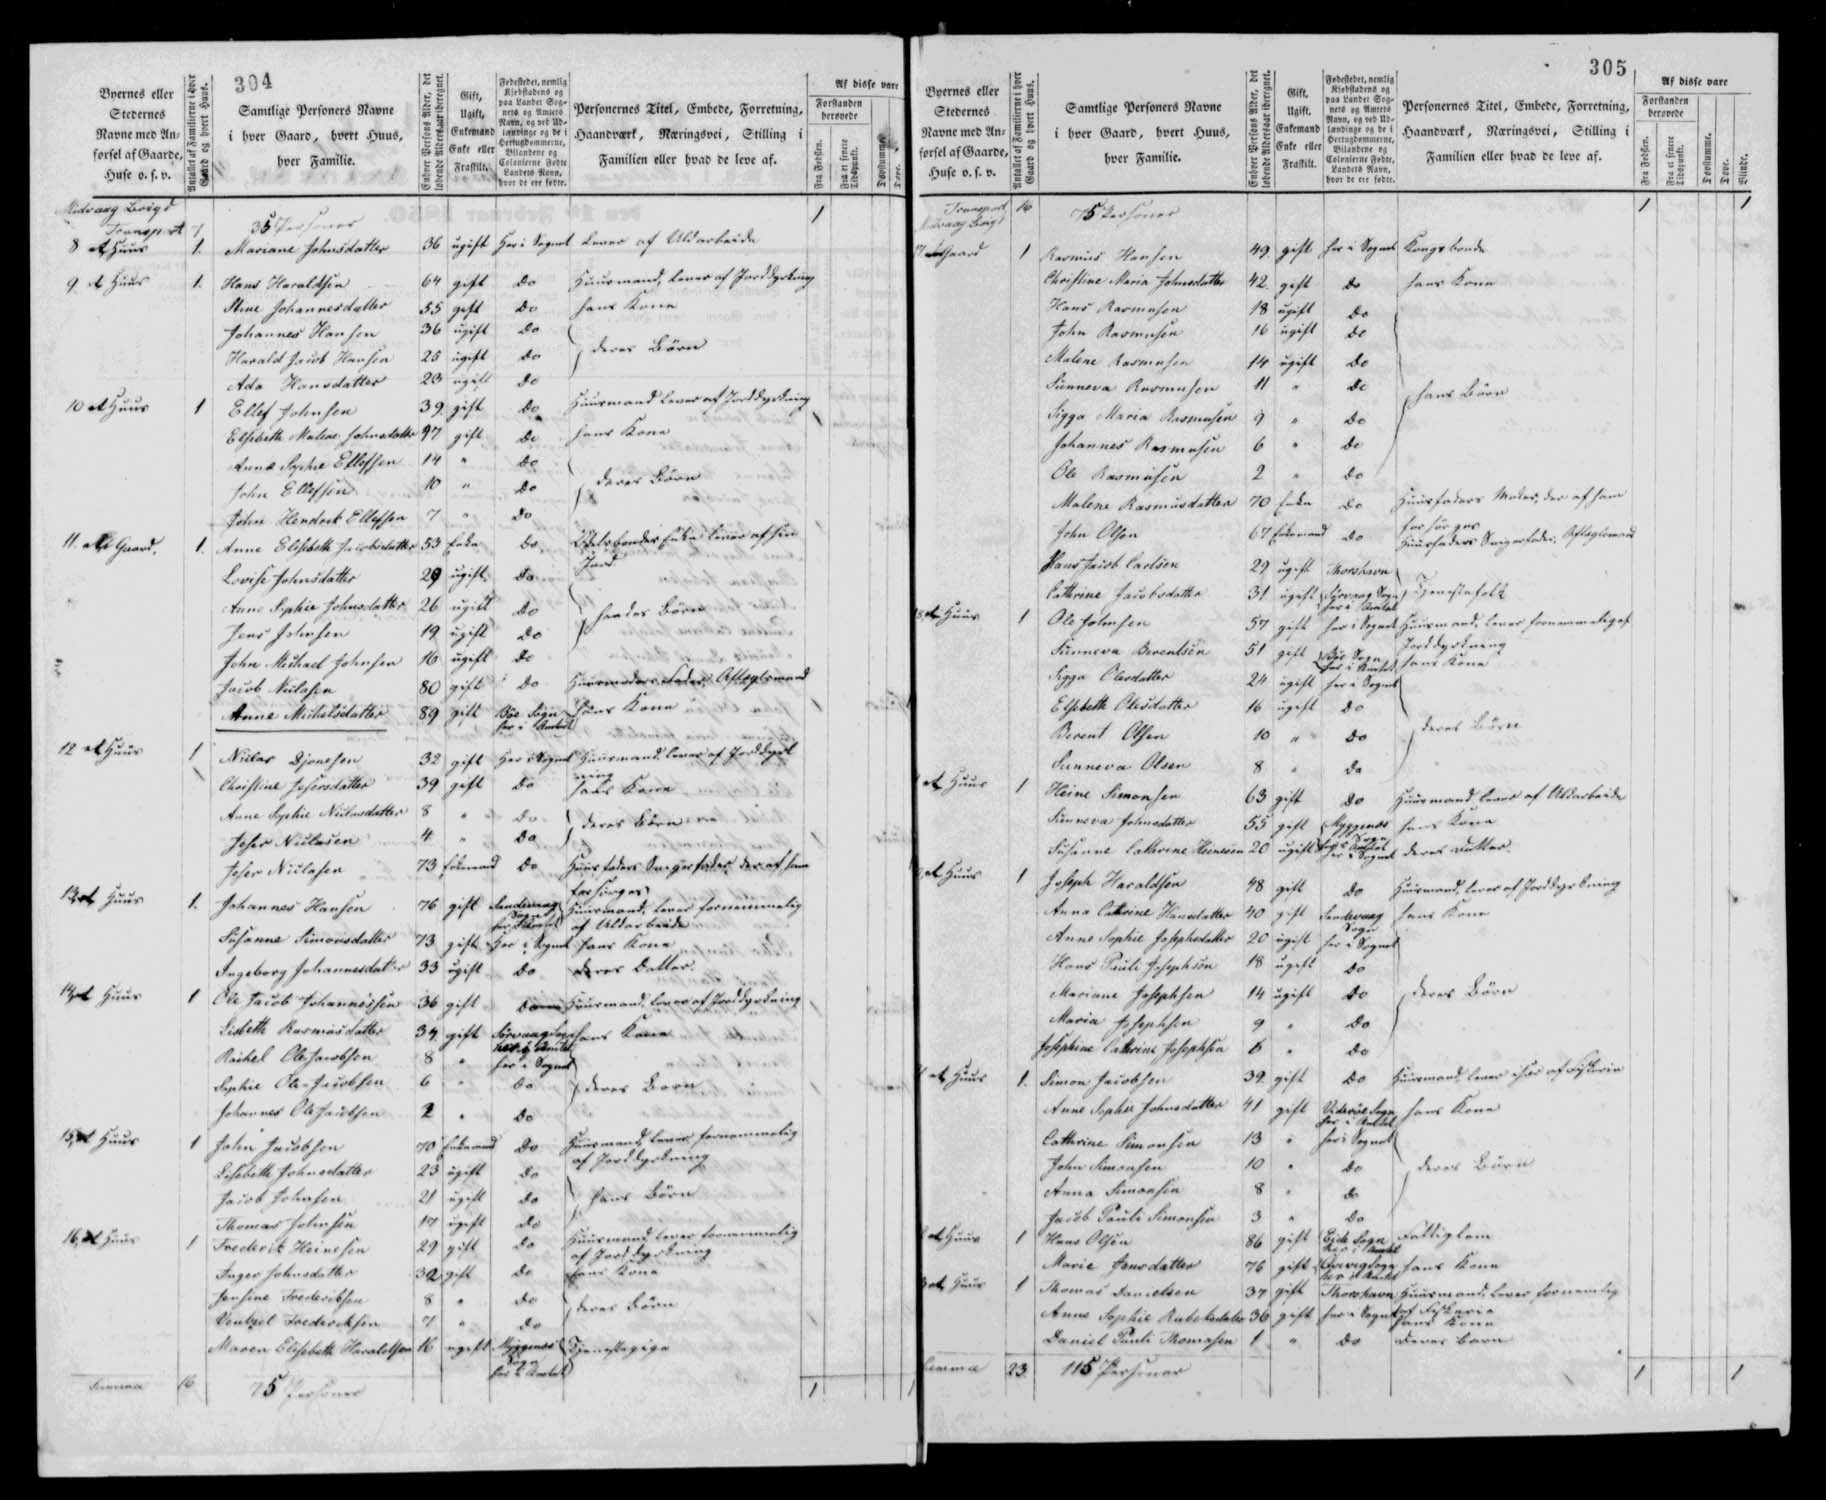 304
Byernes eller Stedernes Navne med Anførsel af Gaarde, Huse o. s. v.
Antallet af Familierne i hver Gaard og hvert Huus.
Samtlige Personers Navne i hver Gaard, hvert Huus, hver Familie.
Enhver Persons Alder, det løbende Aldersaar iberegnet.
Gift, Ugift, Enkemand Enke eller Fraskilt.
Fødestedet, nemlig Kjøbstadens og paa Landet Sognets og Amtets Navn, og ved Udlændinge og de i Hertugdømmerne, Bilandene og Colonierne Fødte, Landets Navn, hvor de ere fødte.
Personernes Titel, Embede, Forretning, Haandværk, Næringsvei, Stilling i Familien eller hvad de leve af.
Af disse vare
Forstanden berøvede
Fra Fødslen.
Fra et senere Tidspunkt.
Døvstumme.
Døve.
Midvaag Boigd
Transport 7 35 Personer 1
8 et Huus 1. Mariane Johnsdatter 36 ugift Her i Sognet Lever af Uldarbeide
9 et Huus 1. Hans Haraldsen 64 gift do Huusmand, lever af Jorddyrkning
Stine Johannesdatter 55 gift do hans Kone
Johannes Hansen 36 ugift do
Harald Jacob Hansen 25 ugift do deres Børn
Ada Hansdatter 23 ugift do
10 et Huus 1 Ellef Johnsen 39 gift do Huusmand lever af Jorddyrkning
Elsebeth Malene Johnsdatter 47 gift do hans Kone
Anne Sophie Ellefsen 14 " do
John Ellefsen 10 " do deres Børn
John Hendrik Ellefsen 7 " do
11. et Gaard. 1. Anne Elisbeth Jacobsdatter 53 Enke do Odelsbondes Enke lever af sin Jord
Lovise Johnsdatter 29 ugift do
Anne Sophie Johnsdatter 26 ugift do hendes Børn
Jens Johnsen 19 ugift do
John Michael Johnsen 16 ugift do
Jacob Niclasen 80 gift do Huusmoders Fader, Aftægtsmand
Anne Michelsdatter 89 gift Bøe Sogn her i Amtet hans Kone
12 et Huus 1 Niclas Djonesen 32 gift Her i Sognet Huusmand lever af Jorddyrkning
Christine Jesersdatter 39 gift do hans Kone
Anne Sophie Niclasdatter 8 " do deres Børn
Jeser Niclasen 4 " do
Jeser Niclasen 73 Enkemand do Huusfaders Svigerfader, der af ham forsørges
13, et Huus 1. Johannes Hansen 76 gift Sandevaag Sogn her i Amtet Huusmand, lever fornemmelig af Uldarbeide
Susanne Simonsdatter 73 gift Her i Sognet hans Kone
Ingeborg Johannesdatter 33 ugift do deres Datter.
14, et Huus 1 Ole Jacob Johannessen 36 gift do Huusmand, lever af Jorddyrkning
Lisbeth Rasmusdatter 34 gift Sørvaag Sogn her i Amtet hans Kone
Rachel Ole Jacobsen 8 " her i Sognet
Sophie Ole Jacobsen 6 " do deres Børn
Johannes Ole Jacobsen 2 " do
15, et Huus 1 John Jacobsen 70 Enkemand do Huusmand, lever fornemmelig af Jorddyrkning
Elsebeth Johnsdatter 23 ugift do
Jacob Johnsen 21 ugift do hans Børn
Thomas Johnsen 17 ugift do
16, et Huus 1 Frederik Heinesen 29 gift do Huusmand lever fornemmelig af Jorddyrkning
Inger Johnsdatter 32 gift do hans Kone
Jensine Frederiksen 8 " do deres Børn
Ventzel Frederiksen 7 " do
Maren Elisebeth Haraldsen 16 ugift Myggenæs Sogn her i Amtet Tjenestepige
Summa 16 75 Personer 1
305
Byernes eller Stedernes Navne med Anførsel af Gaarde, Huse o. s. v.
Antallet af Familierne i hver Gaard og hvert Huus.
Samtlige Personers Navne i hver Gaard, hvert Huus, hver Familie.
Enhver Persons Alder, det løbende Aldersaar iberegnet.
Gift, Ugift, Enkemand Enke eller Fraskilt.
Fødestedet, nemlig Kjøbstadens og paa Landet Sognets og Amtets Navn, og ved Udlændinge og de i Hertugdømmerne, Bilandene og Colonierne Fødte, Landets Navn, hvor de ere fødte.
Personernes Titel, Embede, Forretning, Haandværk, Næringsvei, Stilling i Familien eller hvad de leve af.
Af disse vare
Forstanden berøvede
Fra Fødslen.
Fra et senere Tidspunkt.
Døvstumme.
Døve.
Blinde.
Transport 16 75 Personer 1 1
Midvaag Boigd
17 Gaard 1 Rasmus Hansen 49. gift her i Sognet Kongsbonde
Christine Maria Johnsdatter 42 gift do hans Kone
Hans Rasmusen 18 ugift do
John Rasmusen 16 ugift do
Malene Rasmusen 14 ugift do
Sunneva Rasmusen 11 " do hans Børn
Sigga Maria Rasmusen 9 " do
Johannes Rasmusen 6 " do
Ole Rasmusen 2 " do
Malene Rasmusdatter 70 Enke do Huusfaders Moder, der af ham forsørges
John Olsen 67 Enkemand do Huusfaders Svigerfader, Aftægtsmand
Hans Jacob Carlsen 29 ugift Thorshavn
Cathrine Jacobsdatter 31 ugift Sørvaag Sogn her i Amtet Tjenestefolk
8, et Huus 1 Ole Johnsen 57 gift her i Sognet Huusmand, lever fornemmelig af Jorddyrkning
Sunneva Berentsen 51 gift Bøe Sogn her i Amtet hans Kone
Sigga Olesdatter 24 ugift her i Sognet
Elsebeth Olesdatter 16 ugift do
Berent Olsen 10 " do deres Børn
Sunneva Olsen 8 " do
et Huus 1 Heine Simonsen 63 gift do Huusmand lever af Uldarbeide
Sunneva Johnsdatter 55 gift Myggenæs Sogn her i Amtet hans Kone
Susanne Cathrine Heinesen 20 ugift her i Sognet deres Datter.
et Huus 1 Joseph Haraldsen 48 gift do Huusmand, lever af Jorddyrkning
Anna Cathrine Hansdatter 40 gift Sandevaag Sogn hans Kone
Anne Sophie Josephsdatter 20 ugift her i Sognet
Hans Pauli Josephsen 18 ugift do
Mariane Josephsen 14 ugift do deres Børn
Maria Josephsen 9 " do
Josephine Cathrine Josephsen 6 " do
et Huus 1. Simon Jacobsen 39. gift do Huusmand, lever især af Fiskerie
Anne Sophie Johnsdatter 41 gift Viderøe Sogn her i Amtet hans Kone
Cathrine Simonsen 13 " her i Sognet
John Simonsen 10 " do deres Børn
Anna Simonsen 8 " do
Jacob Pauli Simonsen 3 " do
et Huus 1 Hans Olsen 86 gift Eide Sogn her i Amtet Fattiglem
Marie Jensdatter 76 gift her i Amtet hans Kone
et Huus 1 Thomas Danielsen 37 gift Thorshavn Huusmand, lever fornemlig af Fiskerie
Anne Sophie Rubeksdatter 36 gift her i Sognet hans Kone
Daniel Pauli Thomasen 1 " do deres Barn
Summa 23 115 Personer 1 1